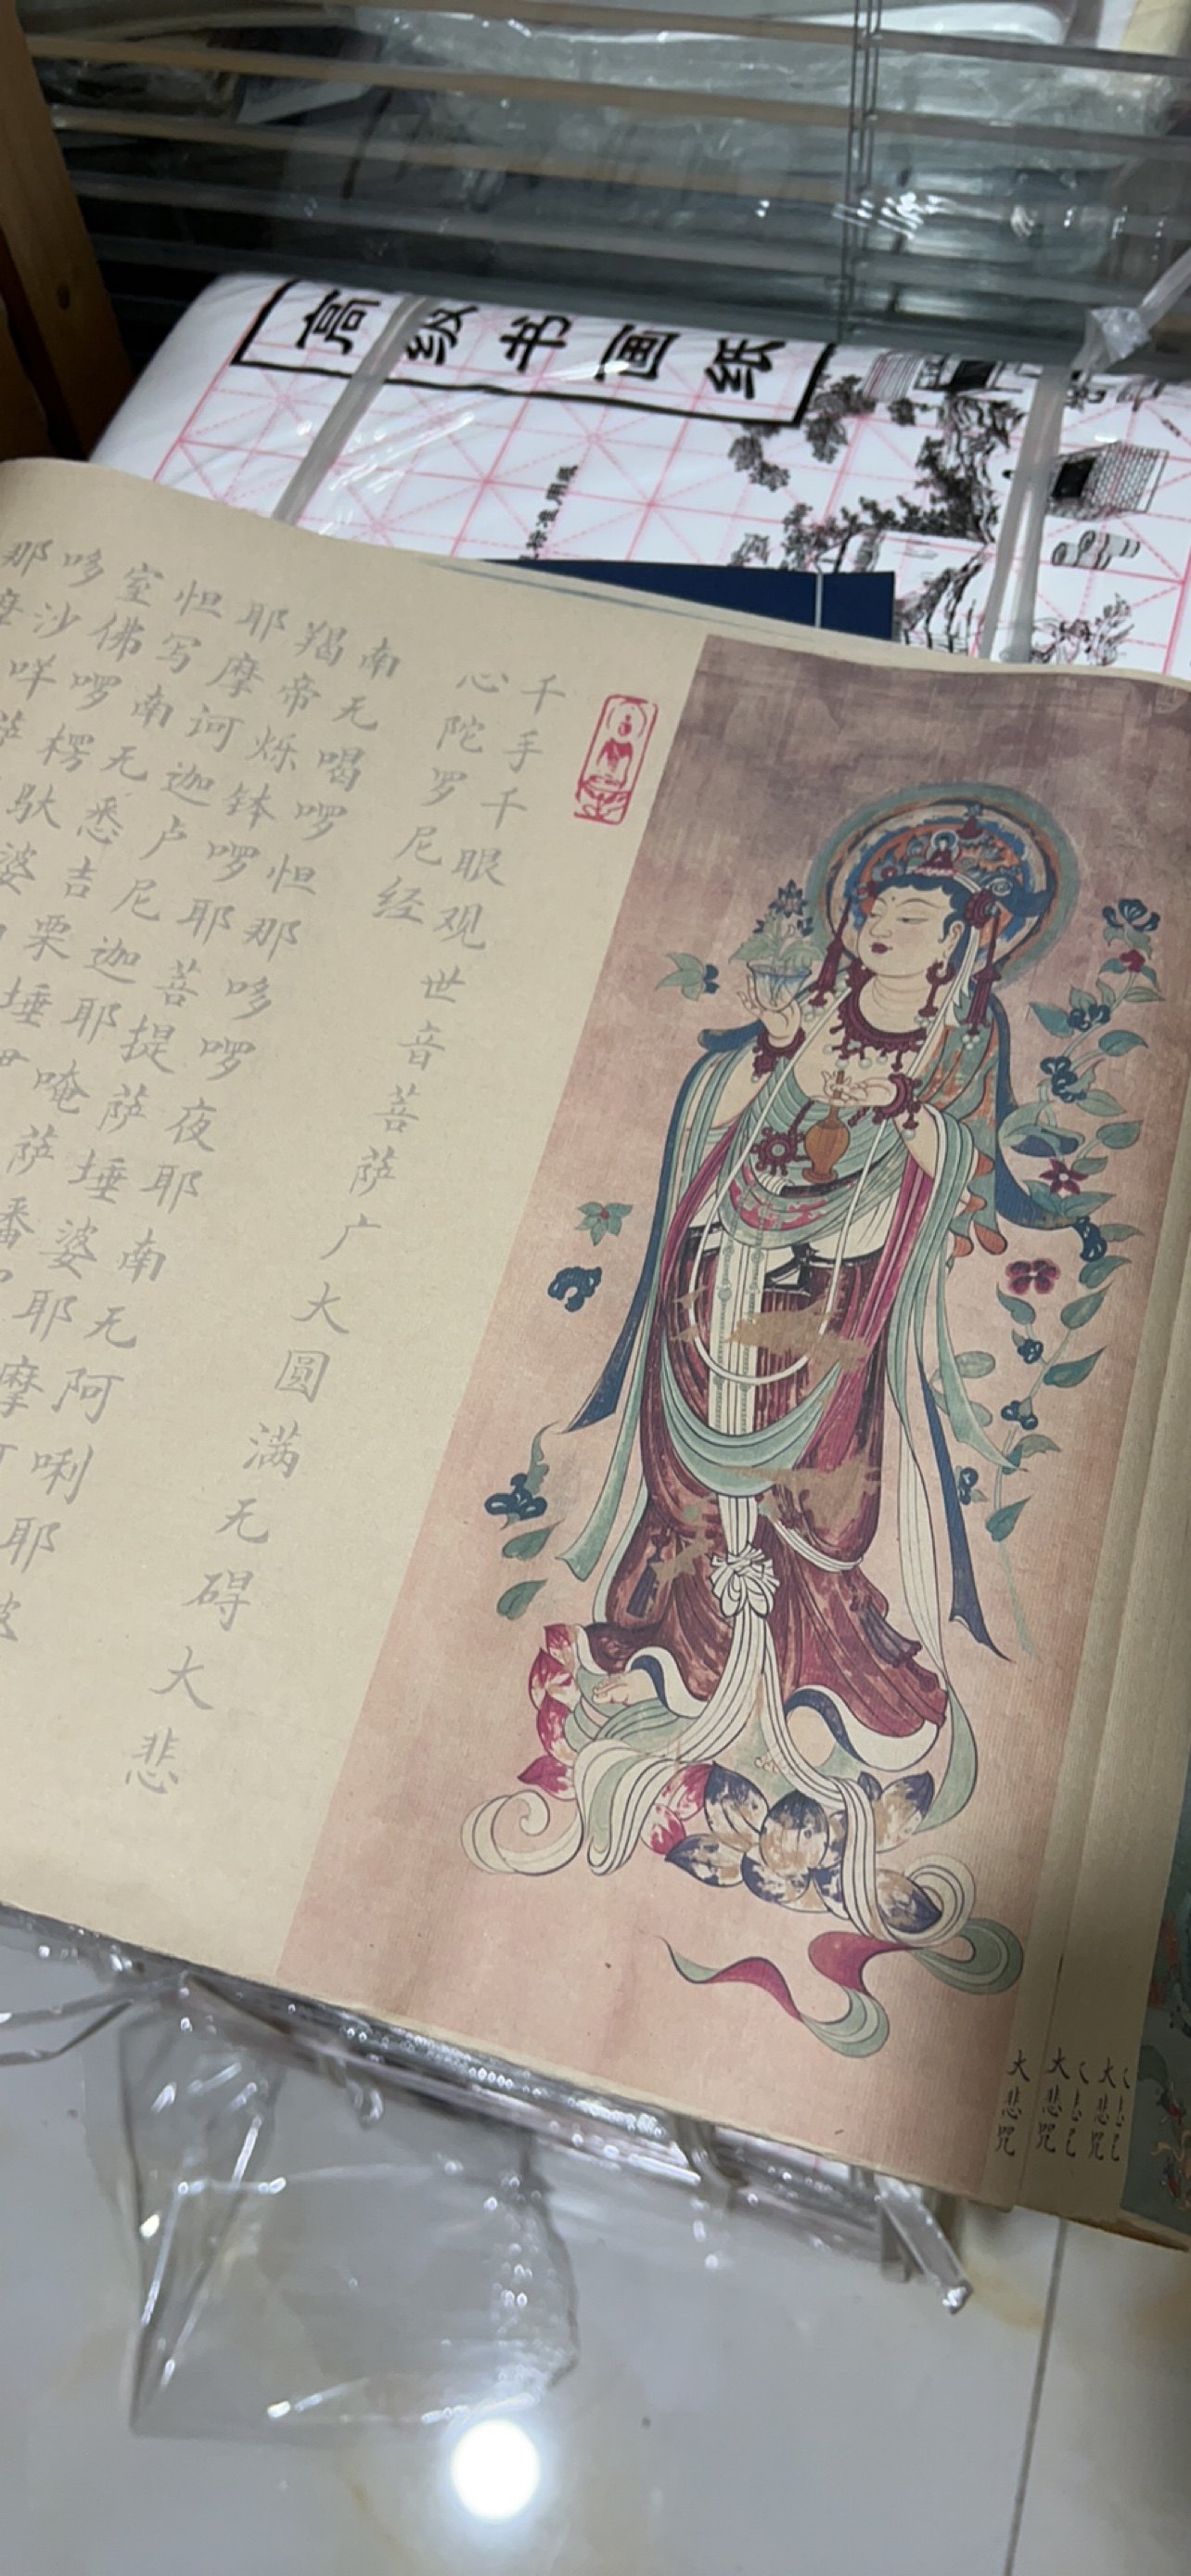 高级书画纸
千手千眼观世音菩萨广大圆满无碍大悲
心陀罗尼经
南无喝啰怛那哆啰夜耶南无阿唎耶
羯帝烁钵啰耶菩提萨埵婆耶摩
耶摩诃迦卢尼迦耶唵萨皤
怛写南无悉吉栗埵
室佛啰楞驮婆
哆沙咩萨
那摩
大悲咒
大悲咒
大悲咒